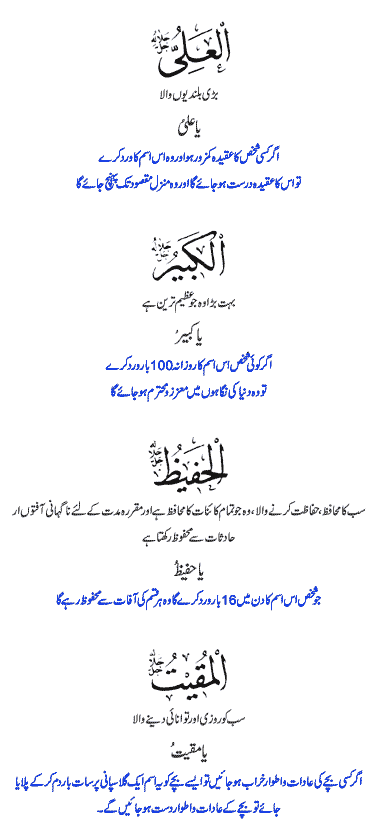 الْعَلِیُّ جل جلالہ
بڑی بلندیوں والا
یا علیُ
اگر کسی شخص کا عقیدہ کمزور ہو اور وہ اس اسم کا ورد کرے
تو اس کا عقیدہ درست ہو جائے گا اور وہ منزل مقصود تک پہنچ جائے گا
الْکَبِیْرُ جل جلالہ
بہت بڑا وہ جو عظیم ترین ہے
یا کبیرُ
اگر کوئی شخص اس اسم کا روزانہ 100 بار ورد کرے
تو وہ دنیا کی نگاہوں میں معزز و محترم ہو جائے گا
الْحَفِیْظُ جل جلالہ
سب کا محافظ، حفاظت کرنے والا، وہ جو تمام کائنات کا محافظ ہے اور مقررہ مدت کے لئے ناگہانی آفتوں ار
حادثات سے محفوظ رکھتا ہے
یا حفیظُ
جو شخص اس اسم کا دن میں 16 بار ورد کرے گا وہ ہر قسم کی آفات سے محفوظ رہے گا
الْمُقِیْتُ جل جلالہ
سب کو روزی اور توانائی دینے والا
یا مقیتُ
اگر کسی بچے کی عادات و اطوار خراب ہو جائیں تو ایسے بچے کو یہ اسم ایک گلاس پانی پر سات بار دم کر کے پلایا
جائے تو بچے کے عادات و اطوار دست ہو جائیں گے۔